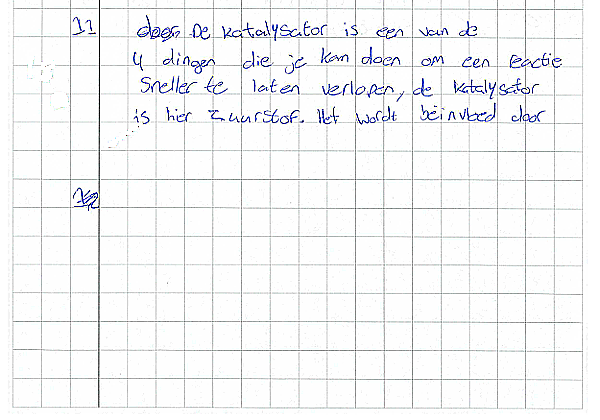 11 door De katalysator is een van de
4 dingen die je kan doen om een reactie
Sneller te laten verlopen, de katalysator
is hier zuurstof. Het wordt beïnvloed door
12